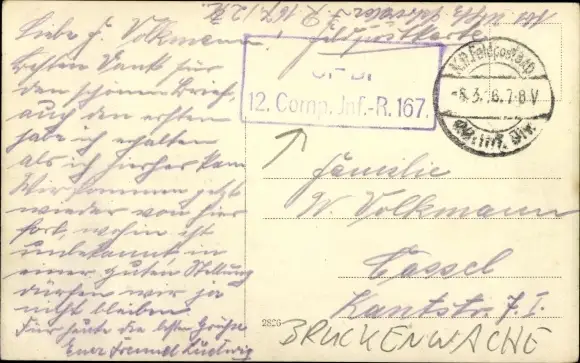 Feldpostkarte
Liebe F. Volkmann!
Besten Dank für
den schönen Brief,
auch den ersten
habe ich erhalten
als ich hierher kam
Wir kommen jetzt
wieder von hier
fort, wohin ist
unbekannt, in
einer guten Stellung
dürfen wir ja
nicht bleiben.
Für heute die besten Grüße
Euer Ludwig
12. Comp. Inf.-R. 167.
K.D. Feldpostexp.
-6.3.16.7-8 V
Familie
W. Volkmann
Cassel
Kantstr. 7. I.
2826
BRÜCKENWACHE